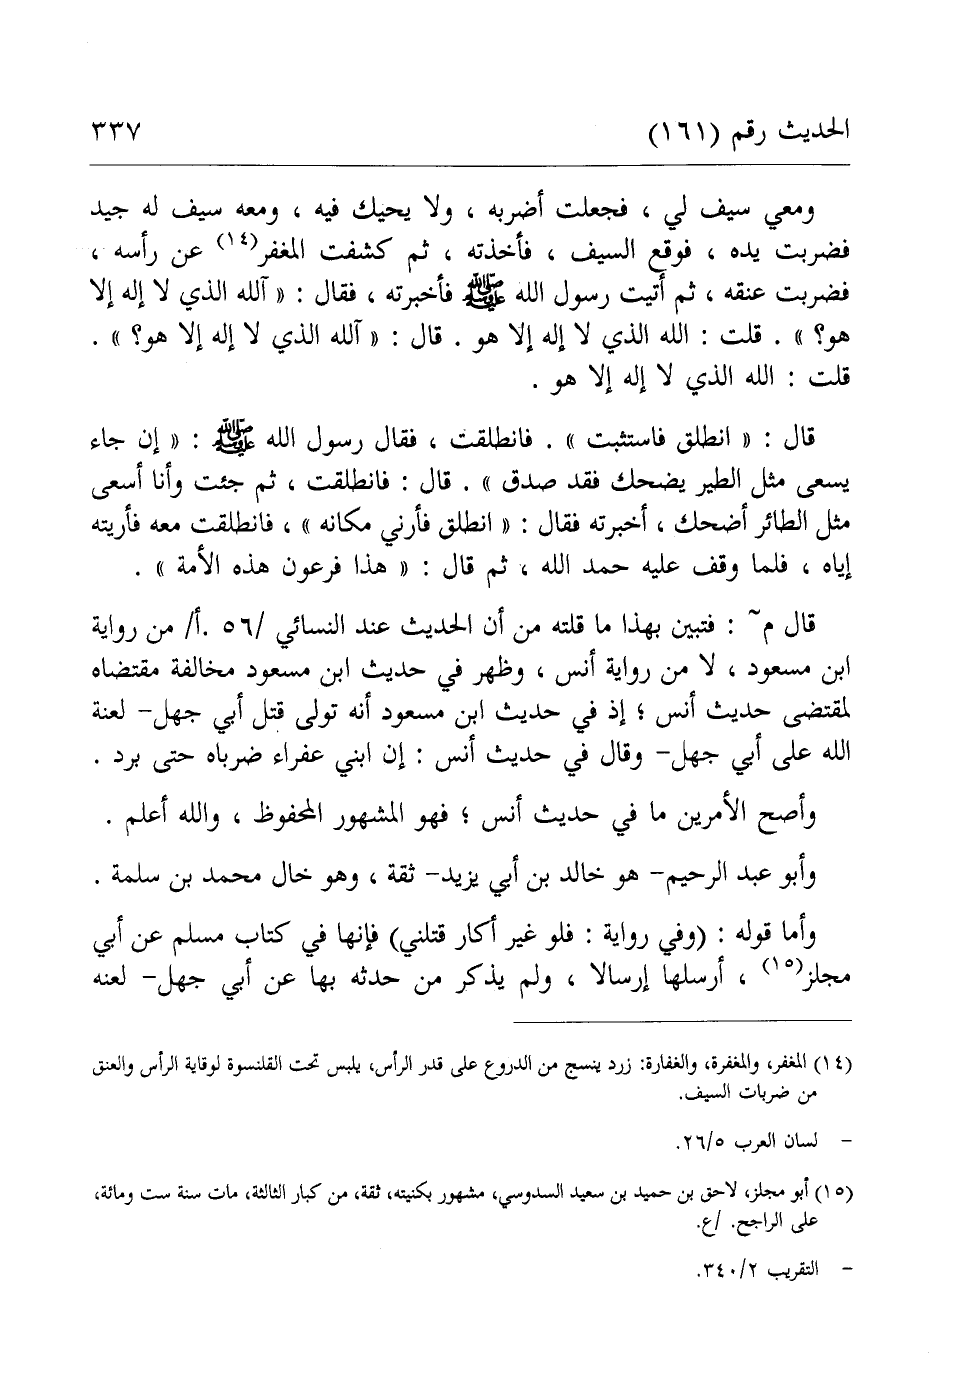 الحديث رقم (١٦١) ٣٣٧
ومعي سيف لي ، فجعلت أضربه ، ولا يحيك فيه ، ومعه سيف له جيد
فضربت يده ، فوقع السيف ، فأخذته ، ثم كشفت المغفر(١٤) عن رأسه ،
فضربت عنقه ، ثم أتيت رسول الله ﷺ فأخبرته ، فقال : « آلله الذي لا إله إلا
هو؟ » . قلت : الله الذي لا إله إلا هو . قال : « آلله الذي لا إله إلا هو؟ » .
قلت : الله الذي لا إله إلا هو .
قال : « انطلق فاستثبت » . فانطلقت ، فقال رسول الله ﷺ : « إن جاء
يسعى مثل الطير يضحك فقد صدق » . قال : فانطلقت ، ثم جئت وأنا أسعى
مثل الطائر أضحك ، أخبرته فقال : « انطلق فأرني مكانه » ، فانطلقت معه فأريته
إياه ، فلما وقف عليه حمد الله ، ثم قال : « هذا فرعون هذه الأمة » .
قال م~ : فتبين بهذا ما قلته من أن الحديث عند النسائي /٥٦ .أ/ من رواية
ابن مسعود ، لا من رواية أنس ، وظهر في حديث ابن مسعود مخالفة مقتضاه
لمقتضى حديث أنس ؛ إذ في حديث ابن مسعود أنه تولى قتل أبي جهل– لعنة
الله على أبي جهل– وقال في حديث أنس : إن ابني عفراء ضرباه حتى برد .
وأصح الأمرين ما في حديث أنس ؛ فهو المشهور المحفوظ ، والله أعلم .
وأبو عبد الرحيم– هو خالد بن أبي يزيد– ثقة ، وهو خال محمد بن سلمة .
وأما قوله : (وفي رواية : فلو غير أكار قتلني) فإنها في كتاب مسلم عن أبي
مجلز(١٥) ، أرسلها إرسالا ، ولم يذكر من حدثه بها عن أبي جهل– لعنه
(١٤) المغفر، والمغفرة، والغفارة: زرد ينسج من الدروع على قدر الرأس، يلبس تحت القلنسوة لوقاية الرأس والعنق
من ضربات السيف.
– لسان العرب ٢٦/٥.
(١٥) أبو مجلز، لاحق بن حميد بن سعيد السدوسي، مشهور بكنيته، ثقة، من كبار الثالثة، مات سنة ست ومائة،
على الراجح. /ع.
– التقريب ٣٤٠/٢.